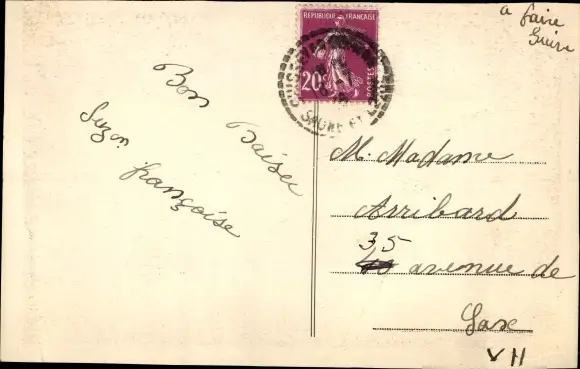 a faire
Suivre
REPUBLIQUE FRANÇAISE
20c
POSTES
SAONE ET LOIRE
Bon Baiser
Suzon
françoise
M. Madame
Arribard
35
40 avenue de
Saxe
VII